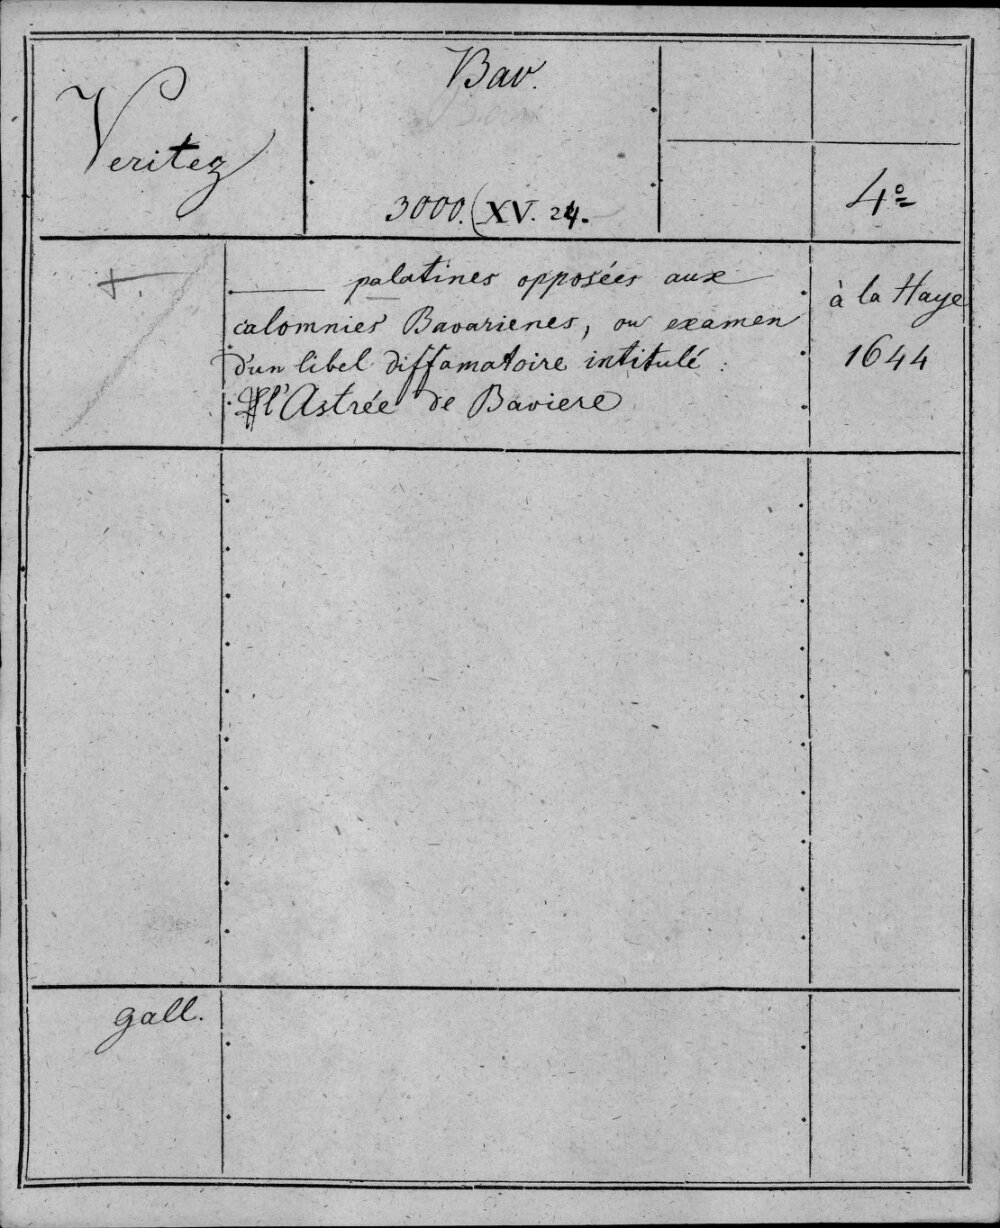 Veritez
Bav.
3000. (XV. 24.
4º
—— palatines opposées aux
calomnies Bavarienes, ou examen
d'un libel diffamatoire intitulé :
l'Astrée de Baviere
à la Haye
1644
gall.